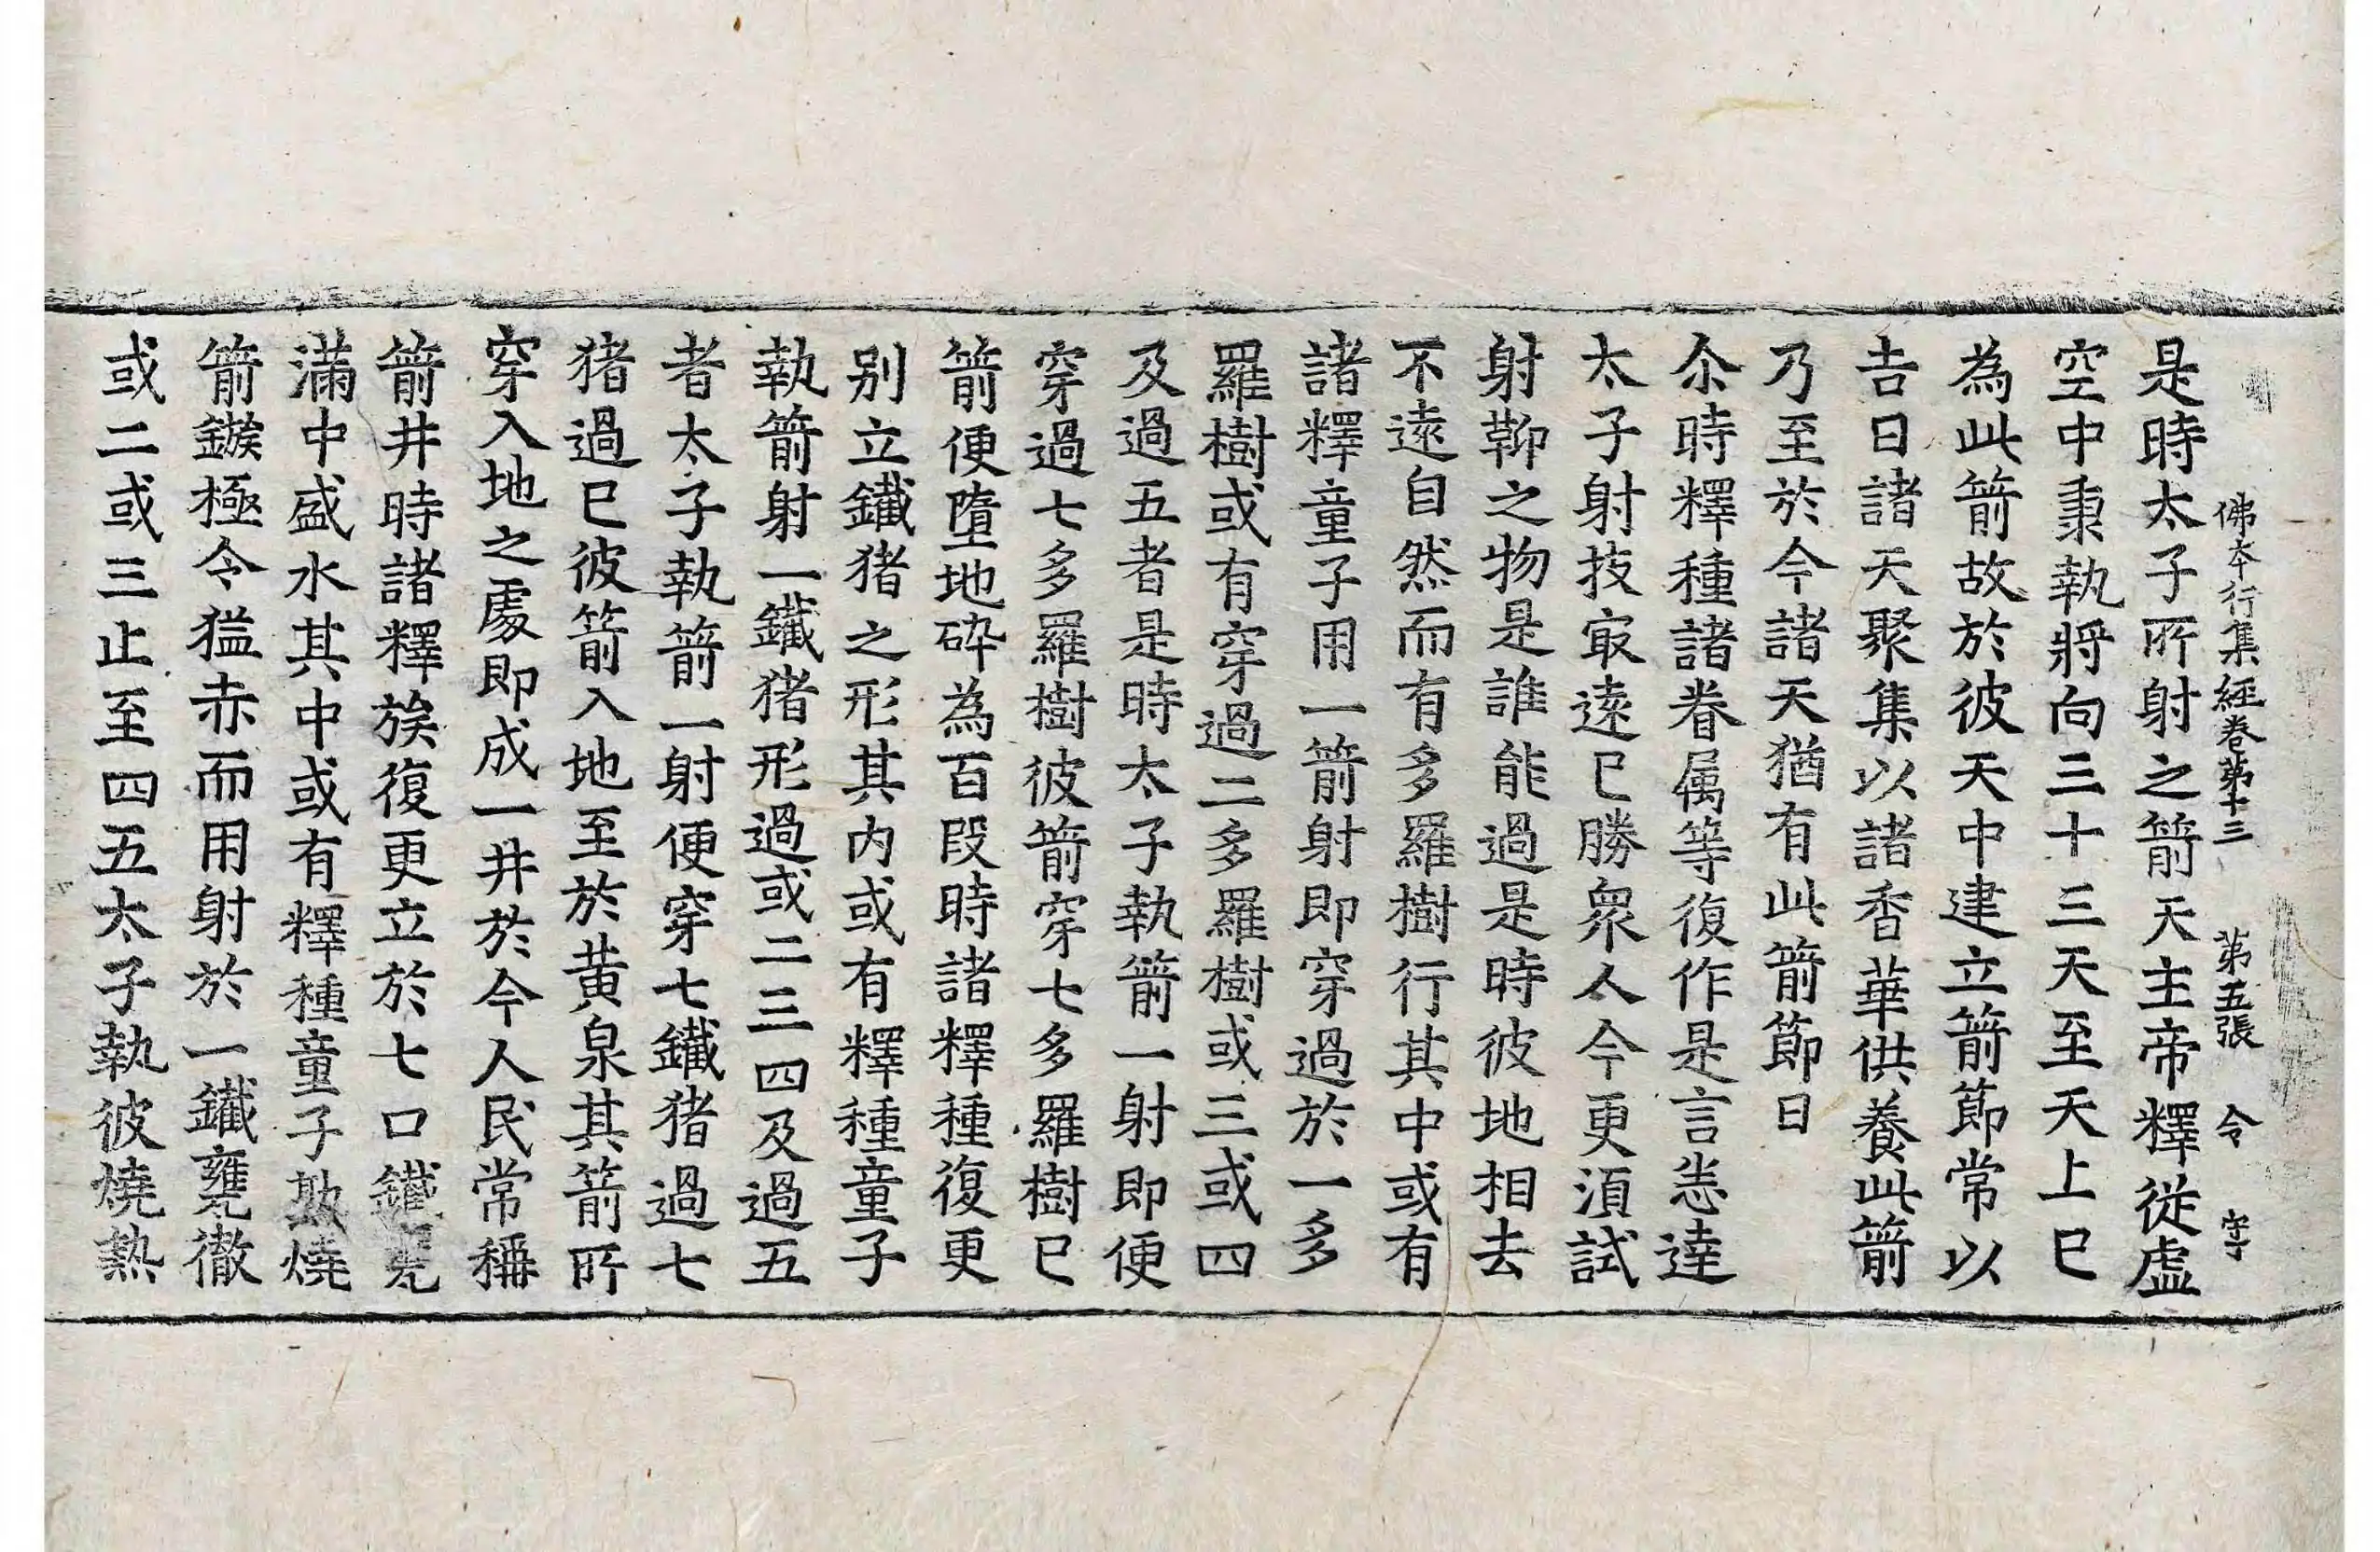 佛本行集經卷第十三 第五張 令 字
是時太子所射之箭天主帝釋從虛
空中秉執將向三十三天至天上已
為此箭故於彼天中建立箭節常以
吉日諸天聚集以諸香華供養此箭
乃至於今諸天猶有此箭節日
尒時釋種諸眷属等復作是言悉達
太子射技㝡遠已勝衆人今更湏試
射鞕之物是誰能過是時彼地相去
不遠自然而有多羅樹行其中或有
諸釋童子用一箭射即穿過於一多
羅樹或有穿過二多羅樹或三或四
及過五者是時太子執箭一射即便
穿過七多羅樹彼箭穿七多羅樹已
箭便墮地碎為百段時諸釋種復更
別立鐵猪之形其内或有釋種童子
執箭射一鐵猪形過或二三四及過五
者太子執箭一射便穿七鐵猪過七
猪過已彼箭入地至於黄泉其箭所
穿入地之處即成一井於今人民常稱
箭井時諸釋族復更立於七口鐵甕
滿中盛水其中或有釋種童子燒
箭鏃極令猛赤而用射於一鐵甕徹
或二或三止至四五太子執彼燒熱